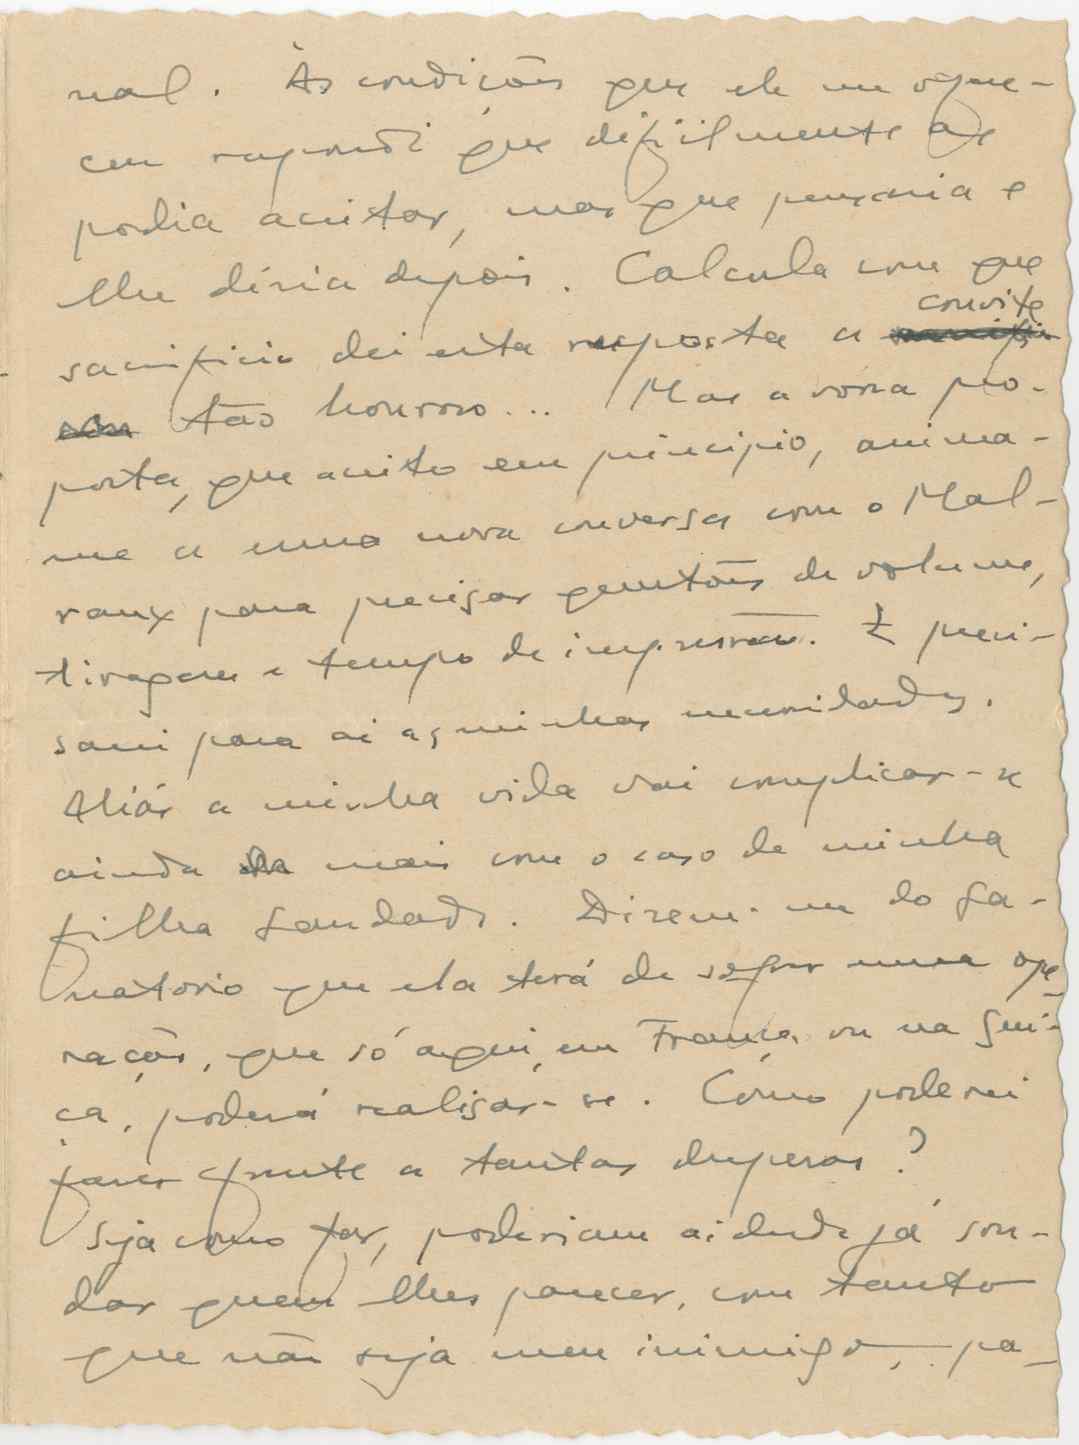 nal. Às condições que ele me ofere-
ceu respondi que dificilmente as
podia aceitar, mas que pensaria e
lhe diria depois. Calcula com que
sacrificio dei esta resposta a convite
tão honroso... Mas a vossa pro-
posta, que aceito em principio, anima-
me a uma nova conversa com o Mal-
raux para precisar questões de volume,
tiragem e tempo de impressão. E preci-
sarei para ai as minhas necessidades.
Aliás a minha vida vai complicar-se
ainda mais com o caso de minha
filha Saudade. Dizem-me do Sa-
natorio que ela terá de sofrer uma ope-
ração, que só aqui, em França, ou na Sui-
ça, poderá realisar-se. Como poderei
fazer frente a tantas despesas?
Seja como for, poderiam ai desde já son-
dar quem lhes parecer, com tanto
que não seja meu inimigo, pa-